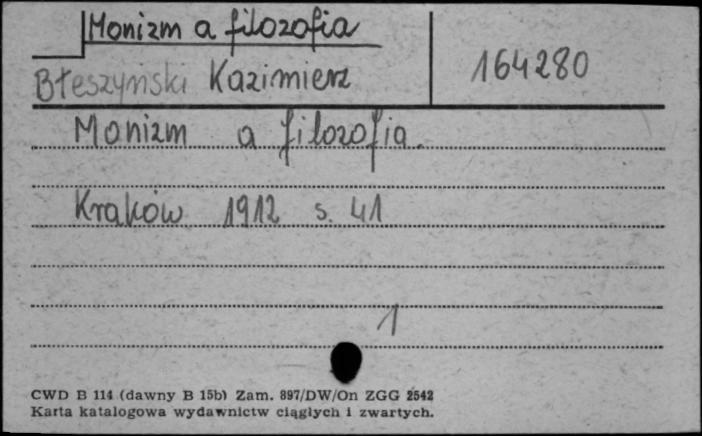 Monizm a filozofia
Błeszyński Kazimierz
164280
Monizm a filozofia.
Kraków 1912 s. 41
1
CWD B 114 (dawny B 15b) Zam. 897/DW/On ZGG 2542
Karta katalogowa wydawnictw ciągłych i zwartych.